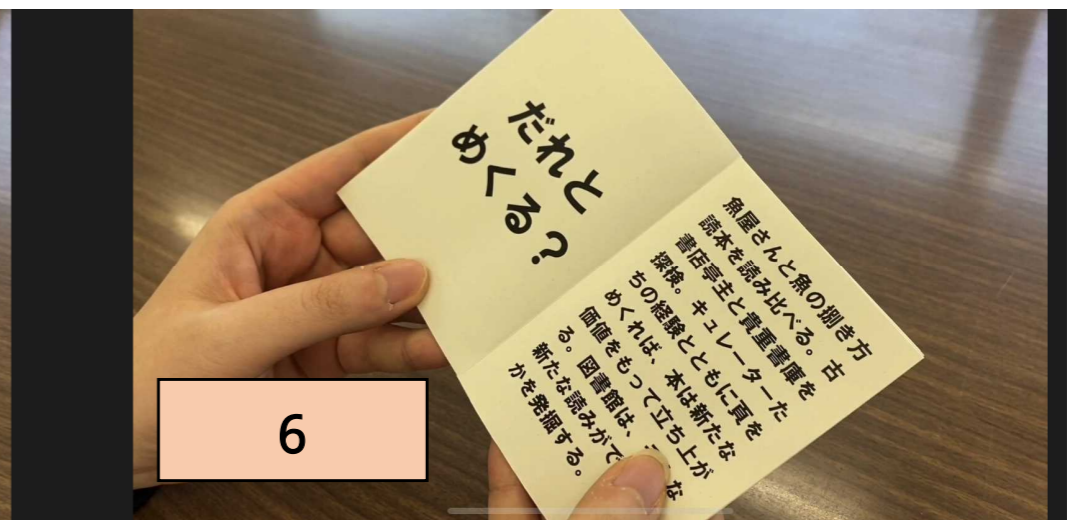 だれと
めくる?
魚屋さんと魚の捌き方
読本を読み比べる。古
書店亭主と貴重書庫を
探検。キュレーターた
ちの経験とともに頁を
めくれば、本は新たな
価値をもって立ち上が
る。図書館は、 な
新たな読みがで
かを発掘する。
6